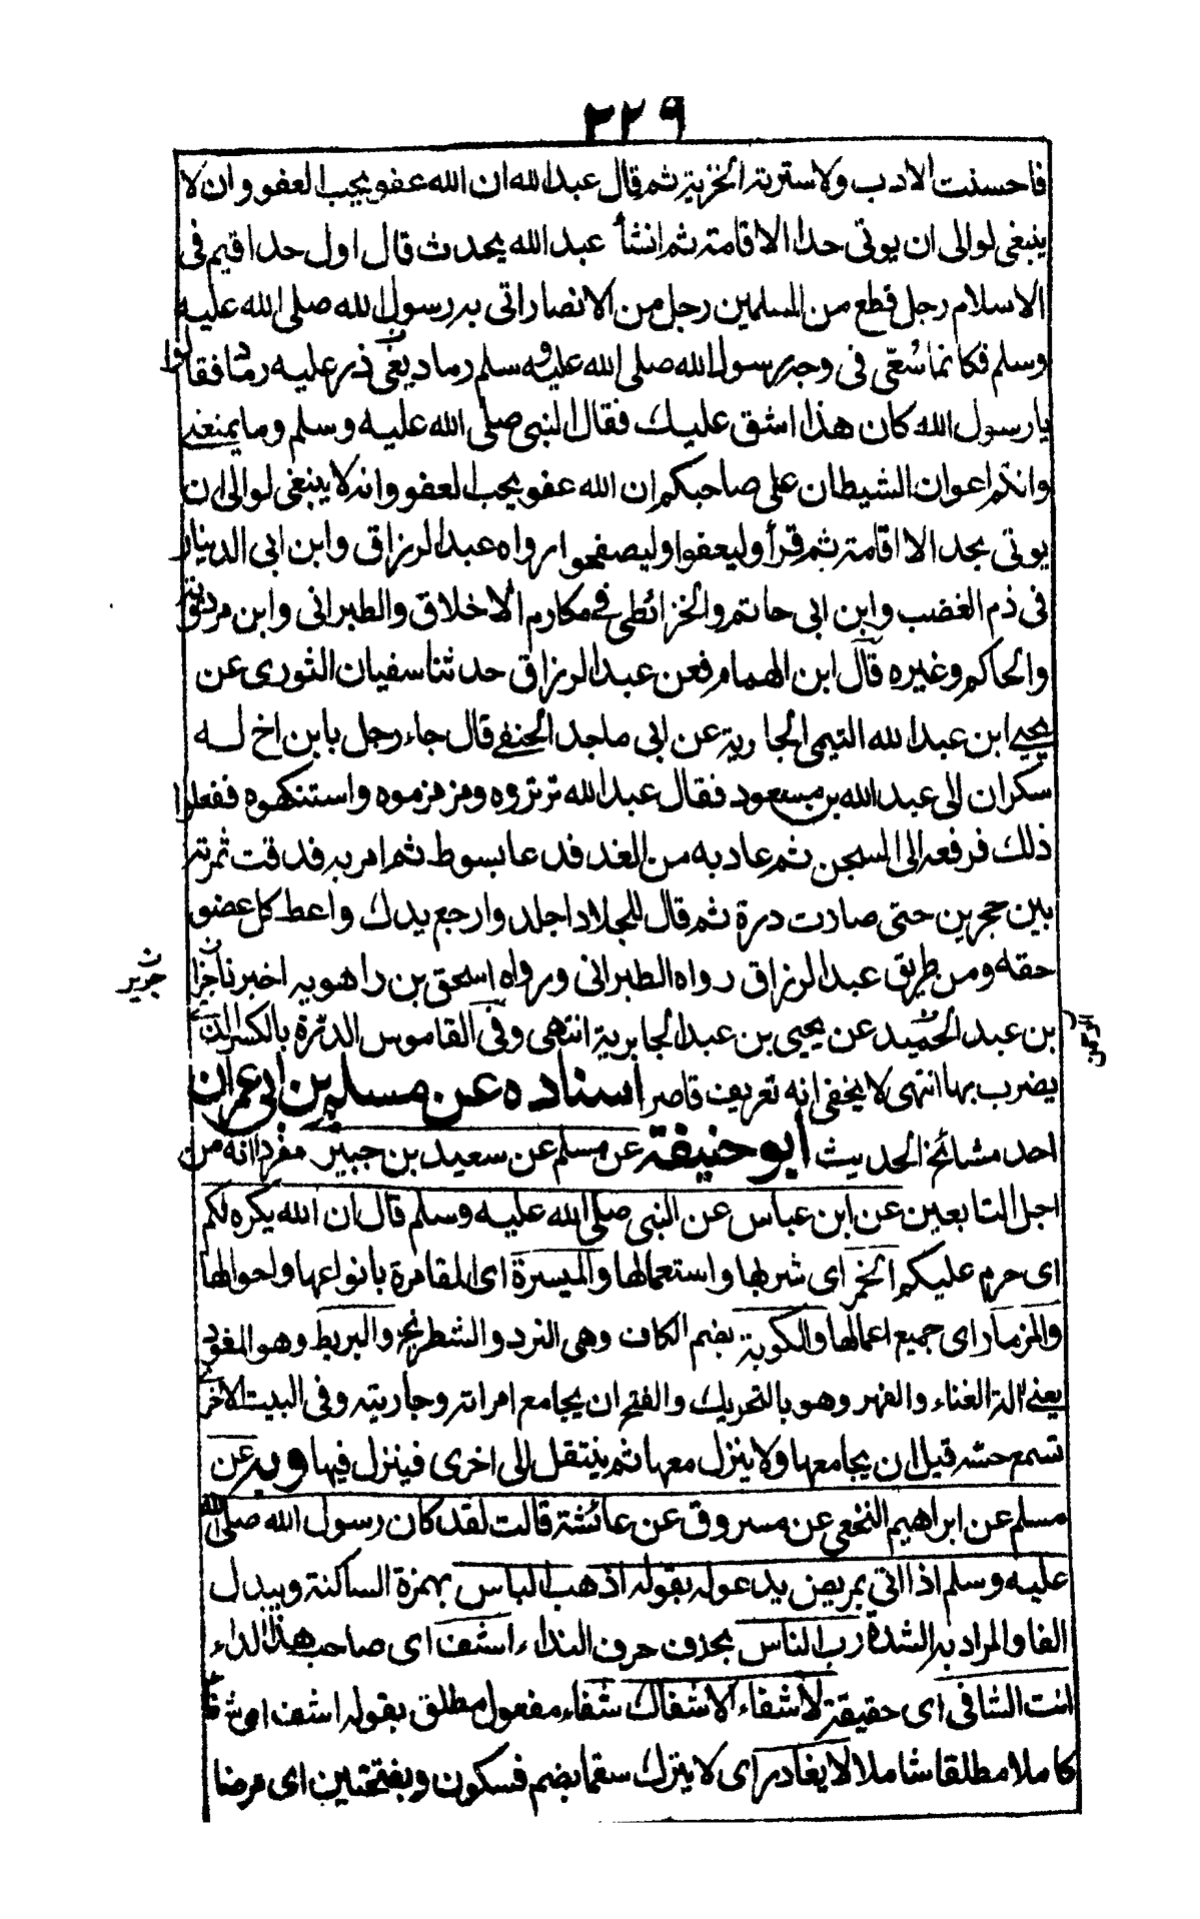 ٣٢٩
فاحسنت الادب ولا سترته الخزية ثم قال عبد الله ان الله عفو يحب العفو وان لا
ينبغي لوالى ان يوتى حدا الا اقامته ثم انشأ عبد الله يحدث قال اول حد اقيم فى
الاسلام رجل قطع من المسلمين رجل من الانصار اتى به رسول الله صلى الله عليه
وسلم فكانما سُفّى فى وجه رسول الله صلى الله عليه وسلم رماد يعنى ذر عليه رماد فقالوا
يا رسول الله كان هذا اشق عليك فقال النبى صلى الله عليه وسلم وما يمنعنى
وانتم اعوان الشيطان على صاحبكم ان الله عفو يحب العفو وانه لا ينبغى لوالى ان
يوتى بحد الا اقامته ثم قرأ وليعفوا وليصفحوا رواه عبد الرزاق وابن ابى الدنيا
فى ذم الغضب وابن ابى حاتم والخرائطى فى مكارم الاخلاق والطبرانى وابن مردويه
والحاكم وغيره قال ابن الهمام فعن عبد الرزاق حدثنا سفيان الثورى عن
يحيى ابن عبد الله التيمى الجابرية عن ابى ماجد الحنفى قال جاء رجل بابن اخ له
سكران الى عبد الله بن مسعود فقال عبد الله ترتروه ومزمزموه واستنكهوه ففعلوا
ذلك فرفعه الى السجن ثم عاد به من الغد فدعا بسوط ثم امر به فدقت ثمرته
بين حجرين حتى صارت درة ثم قال للجلاد اجلد وارجع يدك واعط كل عضو
حقه ومن طريق عبد الرزاق رواه الطبرانى ورواه اسحق بن راهويه اخبرنا
جرير
بن عبد الحميد عن يحيى بن عبد الجابرية انتهى وفى القاموس الدرة بالكسر التى
يضرب بها انتهى لا يخفى انه تعريف قاصر اسناده عن مسلم بن ابى عمران
احد مشائخ الحديث ابو حنيفة عن مسلم عن سعيد بن جبير مفردا انه من
اجل التابعين عن ابن عباس عن النبى صلى الله عليه وسلم قال ان الله يكره لكم
اى حرم عليكم الخمر اى شربها واستعمالها والميسرة اى المقامرة بانواعها واحوالها
والمزمار اى جميع اعمالها والكوبة بضم الكاف وهى النرد والشطرنج والبربط وهو
يعنى آلة الغناء والفهر وهو بالتحريك والفتح ان يجامع امراته وجاريته وفى البيت الاخرى
تسمع حسه قيل ان يجامعها ولا ينزل معها ثم ينتقل الى اخرى فينزل فيها وبه عن
مسلم عن ابراهيم النخعى عن مسروق عن عائشة قالت لقد كان رسول الله صلى الله
عليه وسلم اذا اتى بمريض يدعو له بقوله اذهب الباس بهمزة الساكنة ويبدل
الفا والمراد به الشدة رب الناس بحذف حرف النداء اشف اى صاحب هذا الداء
انت الشافى اى حقيقة لا شفاء الا شفاك شفاء مفعول مطلق بقوله اشف اى شفاء
كاملا مطلقا شاملا لا يغادر اى لا يترك سقما بضم فسكون وبفتحتين اى مرضا